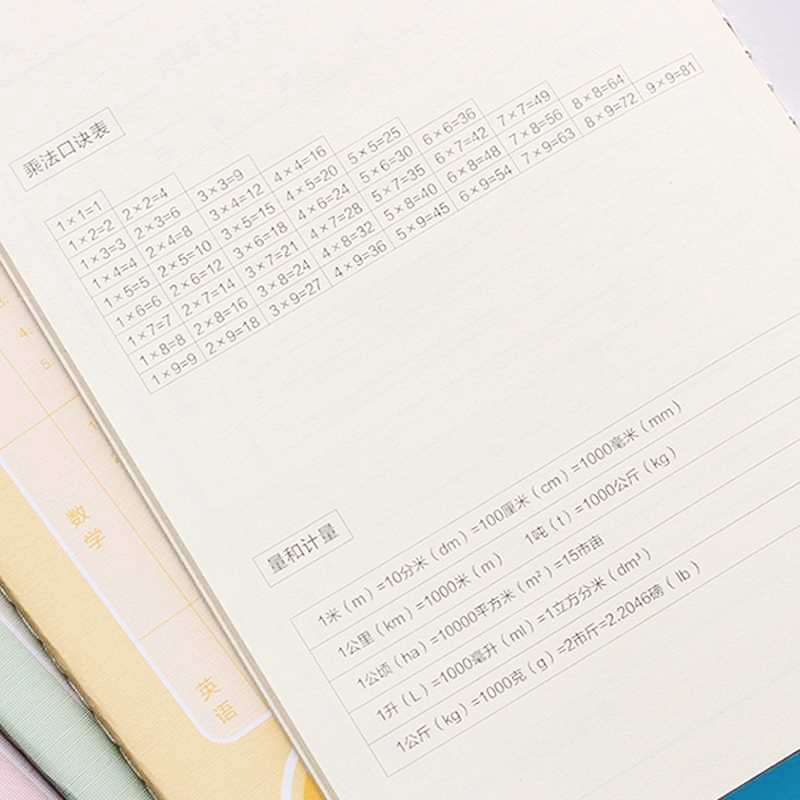 乘法口诀表
1×1=1
1×2=2 2×2=4
1×3=3 2×3=6 3×3=9
1×4=4 2×4=8 3×4=12 4×4=16
1×5=5 2×5=10 3×5=15 4×5=20 5×5=25
1×6=6 2×6=12 3×6=18 4×6=24 5×6=30 6×6=36
1×7=7 2×7=14 3×7=21 4×7=28 5×7=35 6×7=42 7×7=49
1×8=8 2×8=16 3×8=24 4×8=32 5×8=40 6×8=48 7×8=56 8×8=64
1×9=9 2×9=18 3×9=27 4×9=36 5×9=45 6×9=54 7×9=63 8×9=72 9×9=81
量和计量
1米(m)=10分米(dm)=100厘米(cm)=1000毫米(mm)
1公里(km)=1000米(m) 1吨(t)=1000公斤(kg)
1公顷(ha)=10000平方米(m²)=15市亩
1升(L)=1000毫升(ml)=1立方分米(dm³)
1公斤(kg)=1000克(g)=2市斤=2.2046磅(lb)
4.
5.
数学
英语